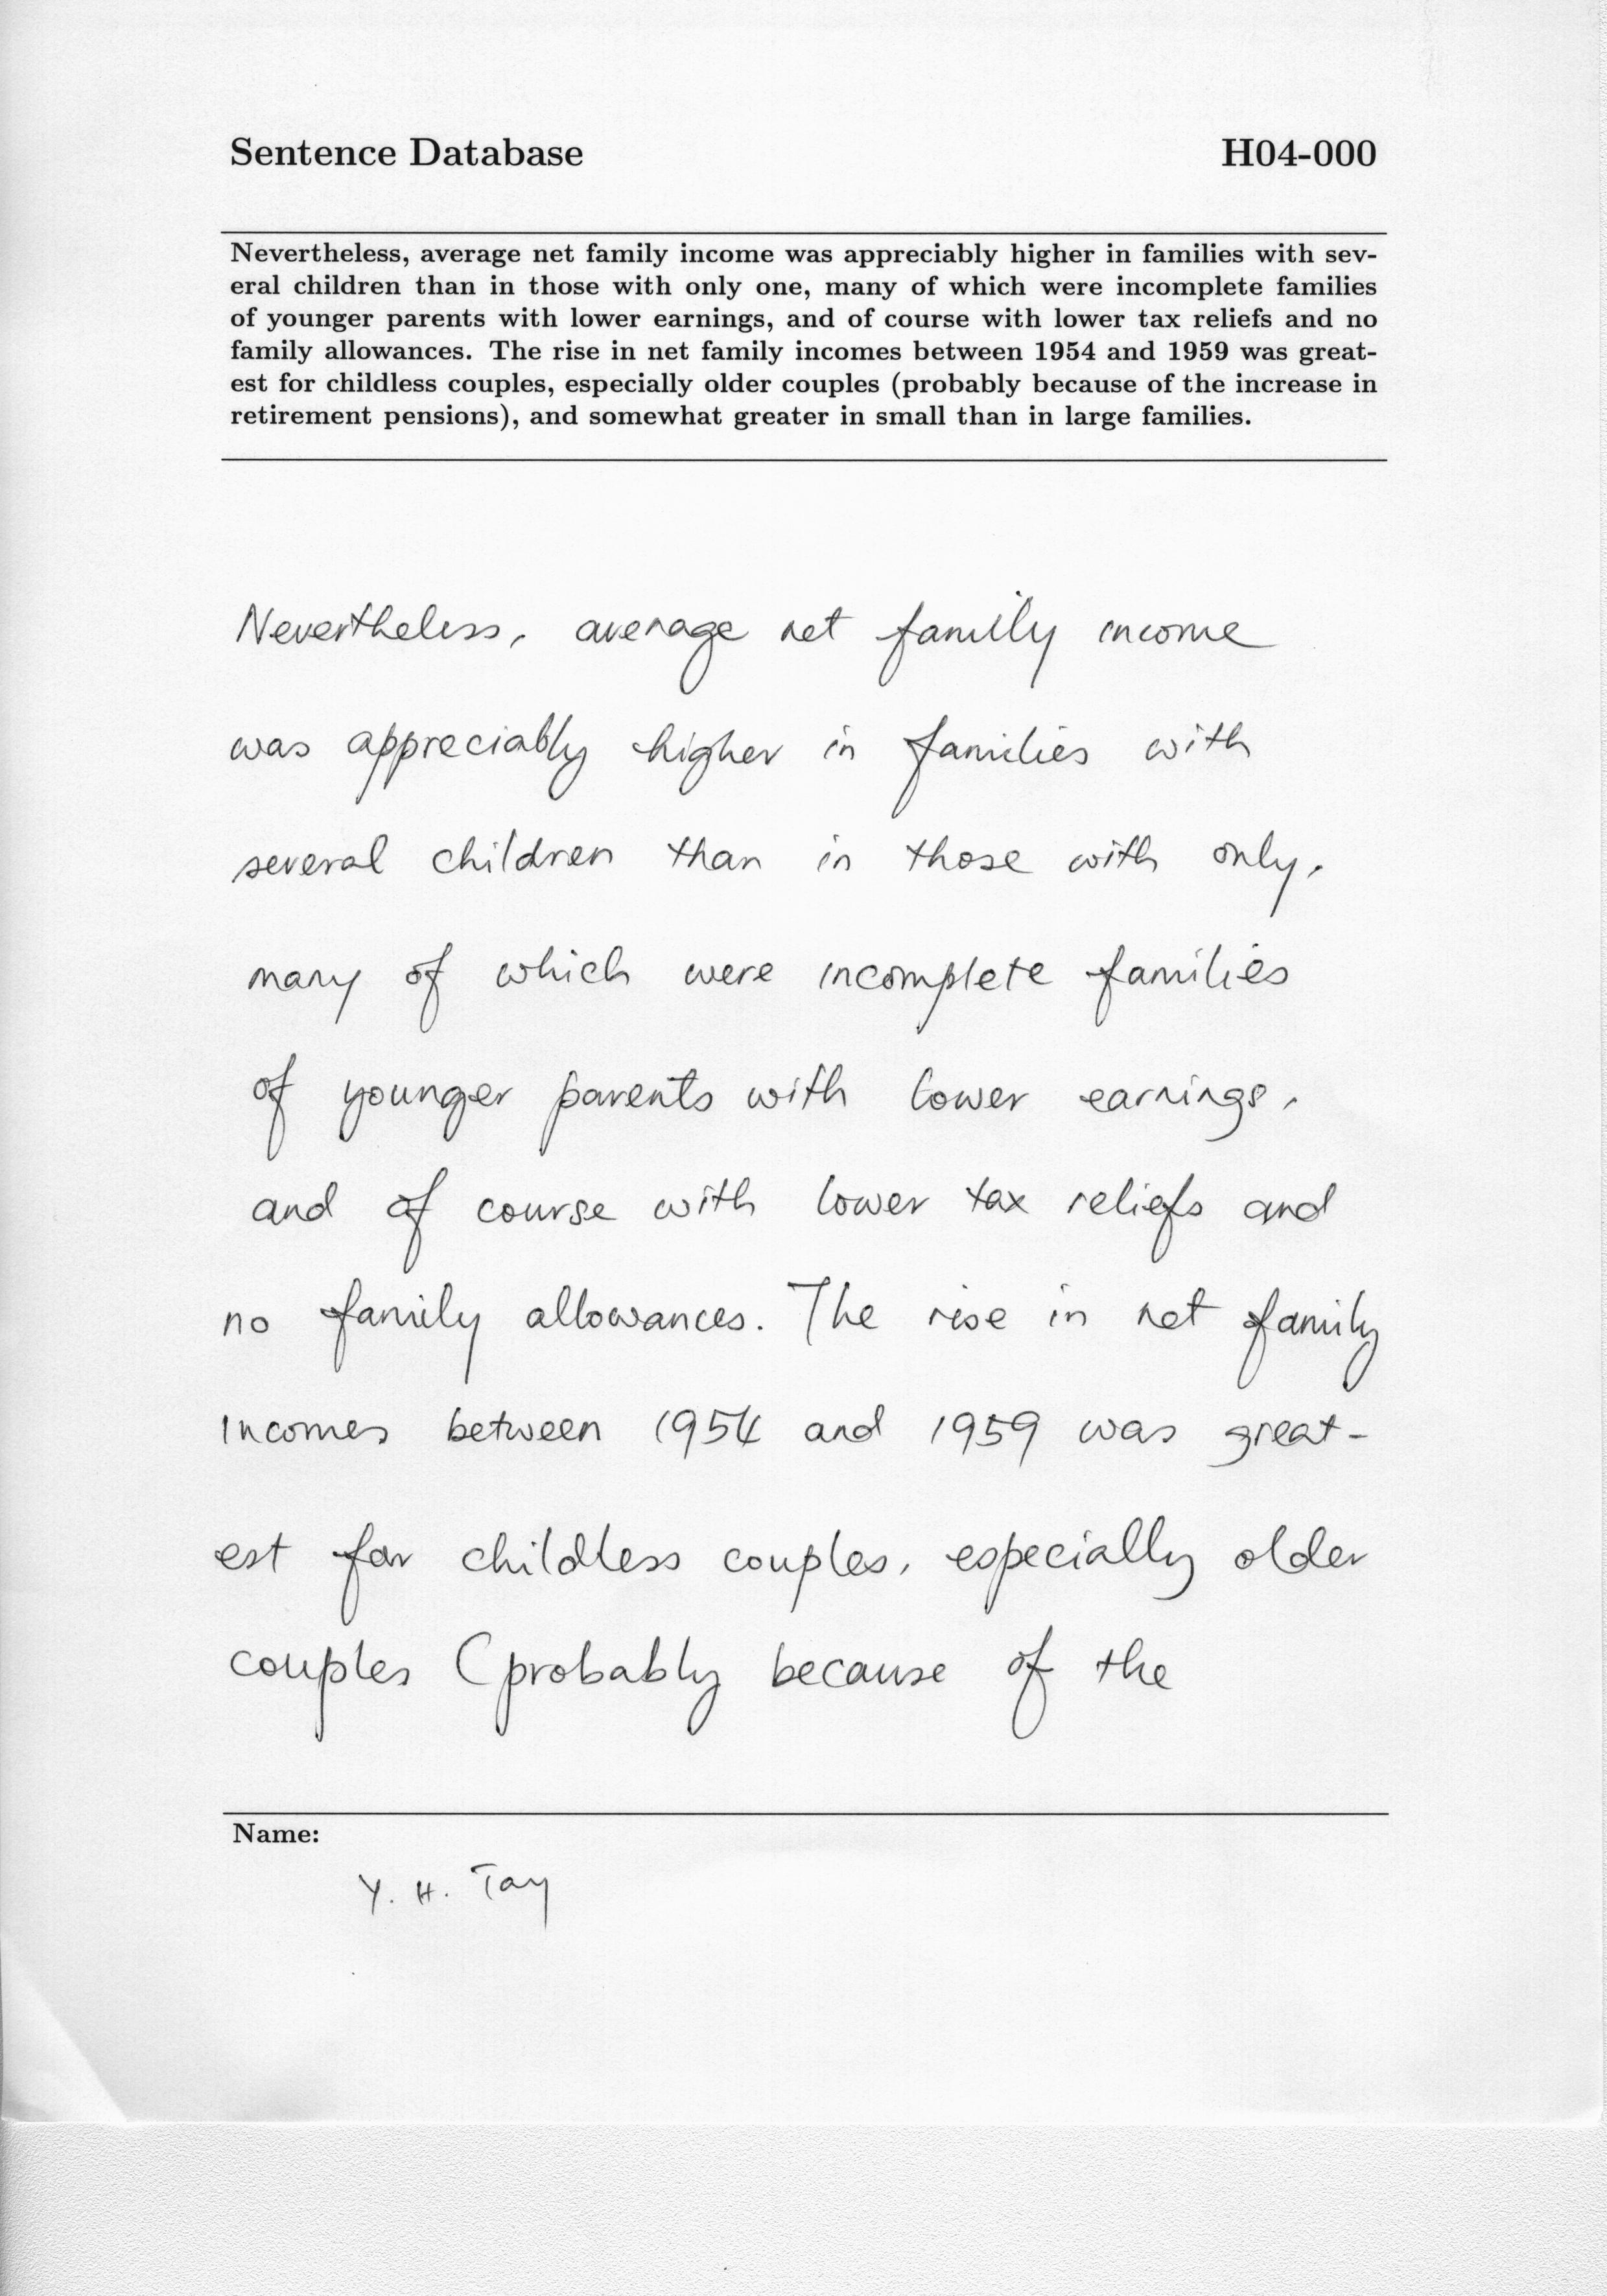 Sentence Database H04-000
Nevertheless, average net family income was appreciably higher in families with sev-
eral children than in those with only one, many of which were incomplete families
of younger parents with lower earnings, and of course with lower tax reliefs and no
family allowances. The rise in net family incomes between 1954 and 1959 was great-
est for childless couples, especially older couples (probably because of the increase in
retirement pensions), and somewhat greater in small than in large families.
Nevertheless, average net family income
was appreciably higher in families with
several children than in those with only,
many of which were incomplete families
of younger parents with lower earnings,
and of course with lower tax reliefs and
no family allowances. The rise in net family
incomes between 1954 and 1959 was great-
est for childless couples, especially older
couples (probably because of the
Name:
Y. H. Tay